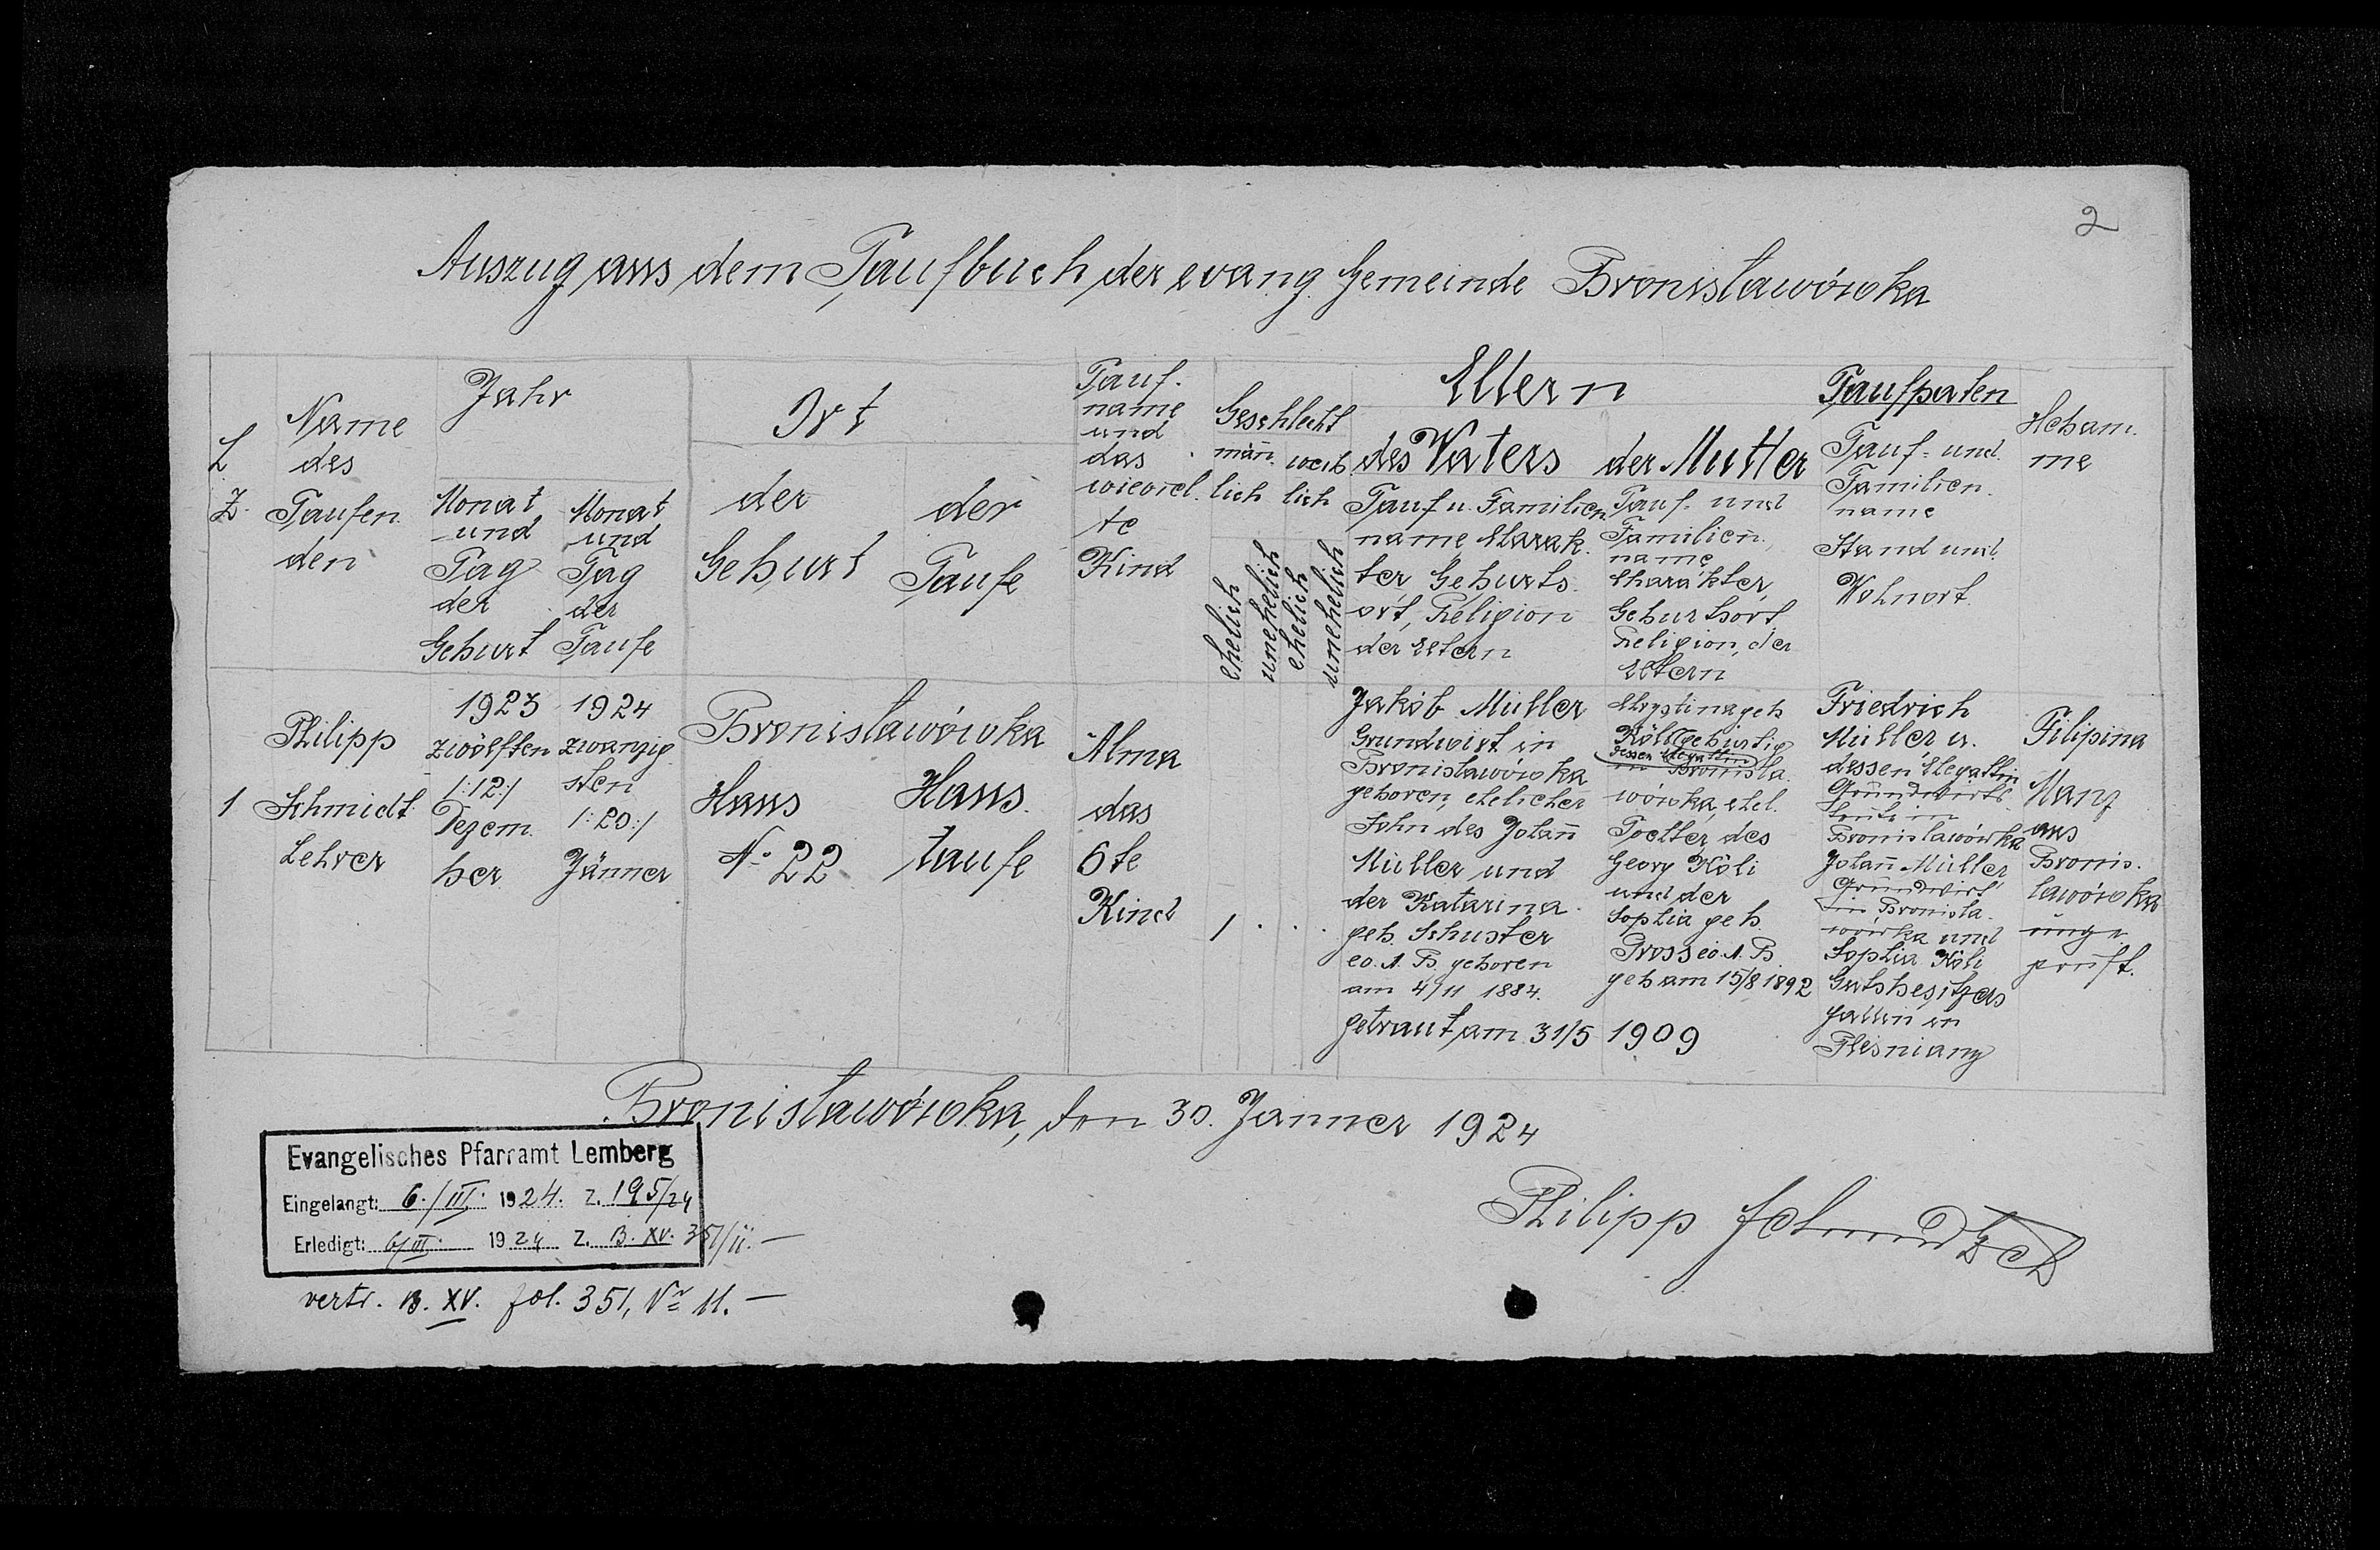 2
Auszug aus dem Taufbuch der evang. Gemeinde Bronislawówka
L
Z.
Name
des
Taufen
den
Jahr
Monat
und
Tag
der
Geburt
Monat
und
Tag
der
Taufe
Ort
der
Geburt
der
Taufe
Tauf-
name
und
das
wieviel.
te
Kind
Geschlecht
män̄-
lich
weib
lich
ehelich
unehelich
ehelich
unehelich
Eltern
des Vaters
Tauf u. Familien
name, Charak.
ter, Geburts.
ort, Religion
der Eltern
der Mutter
Tauf- und
Familien.
name
Charakter,
Geburtsort
Religion, der
Eltern
Taufpaten
Tauf- und
Familien.
name
Stand und
Wohnort.
Hebam.
me
1
Philipp
Schmidt
Lehrer
1923
zwölften
/:12:/
Dezem.
ber
1924
zwanzig
sten
/:20:/
Jänner
Bronislawówka
Haus
No 22
Haus.
taufe
Alma
das
6te
Kind
1 . . .
Jakob Müller
Grundwirt in
Bronislawówka
geboren, ehelicher
Sohn des Johan̄
Müller und
der Katarina
geb. Schuster
ev. A. B. geboren
am 4/11 1884.
getraut am 31/5 1909
Chrystina geb
Köli gebürtig
dessen Ehegattin
in Bronisla.
wówka, ehel.
Tochter des
Georg Köli
und der
Sophia geb.
Pross ev. A. B.
geb am 15/8 1892
Friedrich
Müller u.
dessen Ehegattin
Grundwirts
leute in
Bronislawówka
Johan̄ Müller
Grundwirt
in Bronisla-
wówka und
Sophia Köli
Gutsbesitzers
gattin in
Plesniany
Filipina
Manz
aus
Bronis.
lawówka
unge
prüft.
Bronislawówka, den 30. Jänner 1924
Philipp Schmidt
Evangelisches Pfarramt Lemberg
Eingelangt: 6./III. 1924. Z. 195/24
Erledigt: 6/III. 1924 Z. B. XV. 351/11.—
vertr. B. XV. fol. 351, Nr 11.—